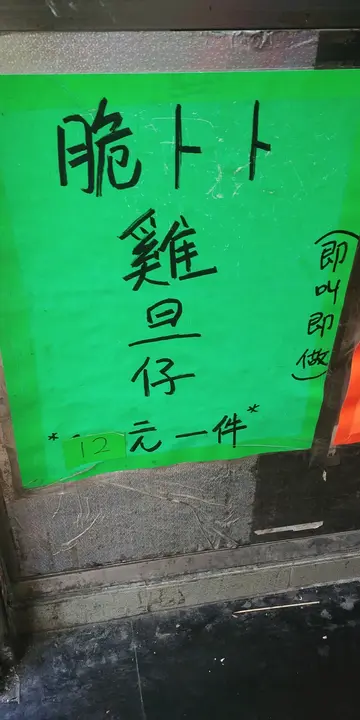 脆卜卜
雞旦仔
(即叫即做)
*12元一件*